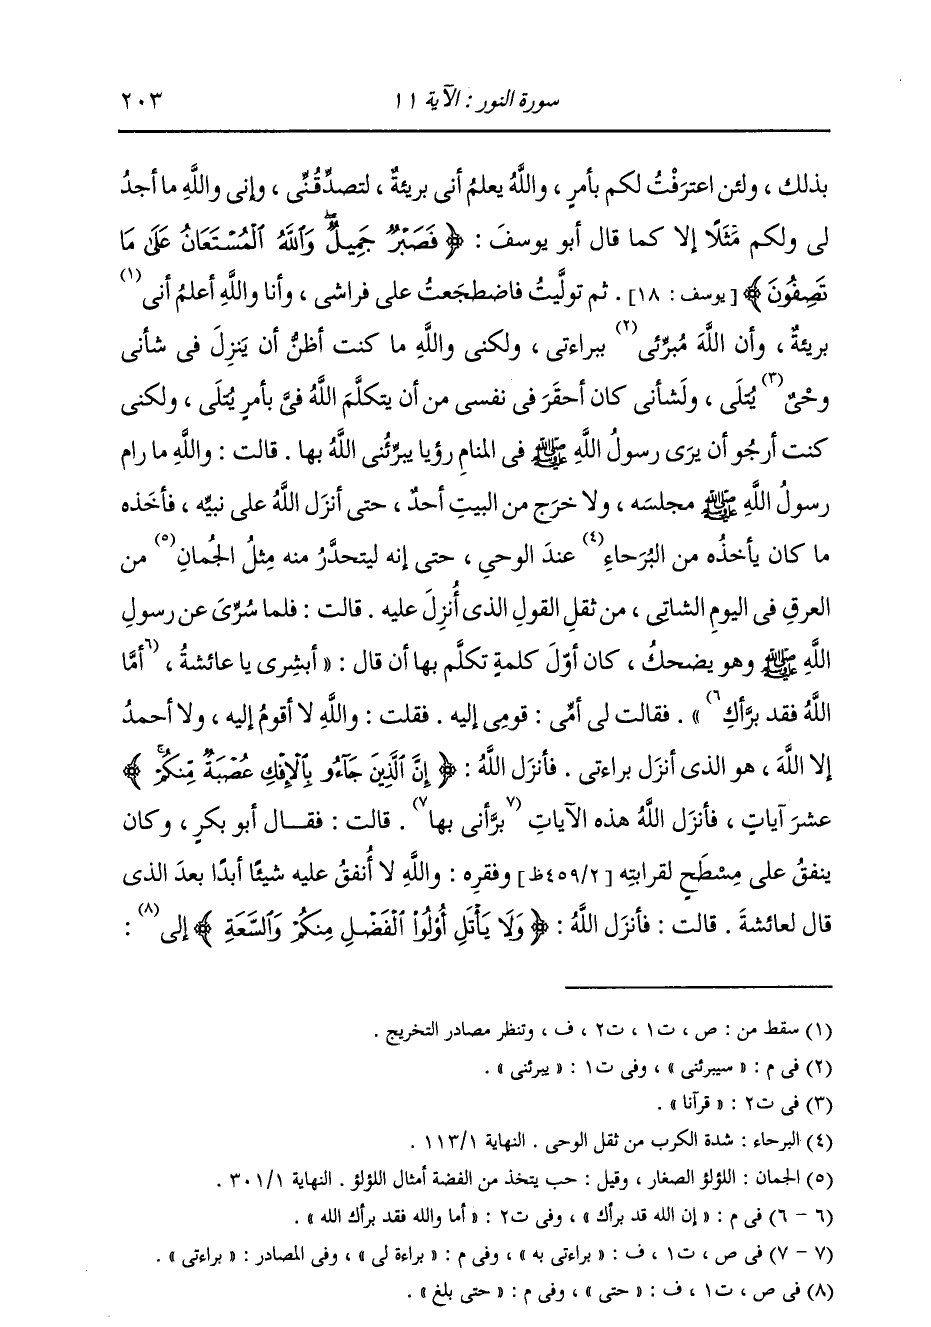 سورة النور : الآية ١١ ٢٠٣
بذلك ، ولئن اعترَفْتُ لكم بأمرٍ ، واللَّهُ يعلمُ أنى بريئةٌ ، لتصدِّقُنِّى ، وإنى واللَّهِ ما أجدُ
لى ولكم مَثَلًا إلا كما قال أبو يوسفَ : ﴿ فَصَبْرٌ جَمِيلٌ ۖ وَاللَّهُ الْمُسْتَعَانُ عَلَىٰ مَا
تَصِفُونَ ﴾ [ يوسف : ١٨] . ثم تولَّيتُ فاضطجَعتُ على فراشى ، وأنا واللَّهِ أعلمُ أنى(١)
بريئةٌ ، وأن اللَّهَ مُبرِّئى(٢) ببراءتى ، ولكنى واللَّهِ ما كنت أظنُّ أن يَنزِلَ فى شأنى
وحْىٌ(٣) يُتلَى ، ولَشأنى كان أحقَرَ فى نفسى من أن يتكلَّمَ اللَّهُ فىَّ بأمرٍ يُتلَى ، ولكنى
كنت أرجُو أن يرَى رسولُ اللَّهِ ﷺ فى المنامِ رؤيا يبرِّئُنى اللَّهُ بها . قالت : واللَّهِ ما رام
رسولُ اللَّهِ ﷺ مجلسَه ، ولا خرَج من البيتِ أحدٌ ، حتى أنزَل اللَّهُ على نبيِّه ، فأخَذه
ما كان يأخذُه من البُرَحاءِ(٤) عندَ الوحىِ ، حتى إنه ليتحدَّرُ منه مِثلُ الجُمانِ(٥) من
العرقِ فى اليومِ الشاتِى ، من ثقلِ القولِ الذى أُنزِلَ عليه . قالت : فلما سُرِّىَ عن رسولِ
اللَّهِ ﷺ وهو يضحكُ ، كان أوّلَ كلمةٍ تكلَّم بها أن قال : « أبشِرى يا عائشةُ ، (٦أمَّا
اللَّهُ فقد برَّأكِ٦) » . فقالت لى أمِّى : قومِى إليه . فقلت : واللَّهِ لا أقومُ إليه ، ولا أحمدُ
إلا اللَّهَ ، هو الذى أنزَل براءتى . فأنزَل اللَّهُ : ﴿ إِنَّ الَّذِينَ جَآءُو بِالْإِفْكِ عُصْبَةٌ مِّنكُمْ ۚ ﴾
عشرَ آياتٍ ، فأنزَل اللَّهُ هذه الآياتِ (٧برَّأنى بها٧) . قالت : فقال أبو بكرٍ ، وكان
ينفقُ على مِسْطَحٍ لقرابتِه [٤٥٩/٢ظ] وفقرِه : واللَّهِ لا أُنفقُ عليه شيئًا أبدًا بعدَ الذى
قال لعائشةَ . قالت : فأنزَل اللَّهُ : ﴿ وَلَا يَأْتَلِ أُوْلُواْ الْفَضْلِ مِنكُمْ وَالسَّعَةِ ﴾ إلى(٨) :
(١) سقط من : ص ، ت١ ، ت٢ ، ف ، وتنظر مصادر التخريج .
(٢) فى م : « سيبرئنى » ، وفى ت١ : « يبرئنى » .
(٣) فى ت٢ : « قرآنا » .
(٤) البرحاء : شدة الكرب من ثقل الوحى . النهاية ١١٣/١ .
(٥) الجمان : اللؤلؤ الصغار ، وقيل : حب يتخذ من الفضة أمثال اللؤلؤ . النهاية ٣٠١/١ .
(٦ - ٦) فى م : « إن الله قد برأك » ، وفى ت٢ : « أما والله فقد برأك الله » .
(٧ - ٧) فى ص ، ت١ ، ف : « براءتى به » ، وفى م : « براءة لى » ، وفى المصادر : « براءتى » .
(٨) فى ص ، ت١ ، ف : « حتى » ، وفى م : « حتى بلغ » .